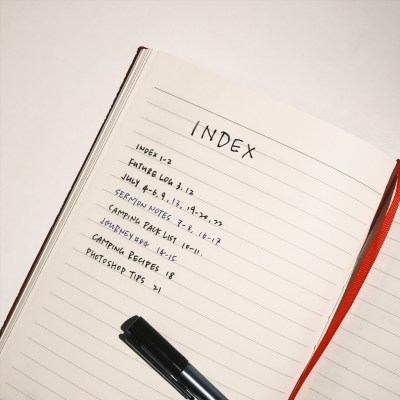 INDEX
INDEX 1-2
FUTURE LOG 3, 12
JULY 4-6, 9, 13, 19-20, 22
SERMON NOTES 7-8, 16-17
CAMPING PACK LIST 10-11
JOURNEY 14-15
CAMPING RECIPES 18
PHOTOSHOP TIPS 21